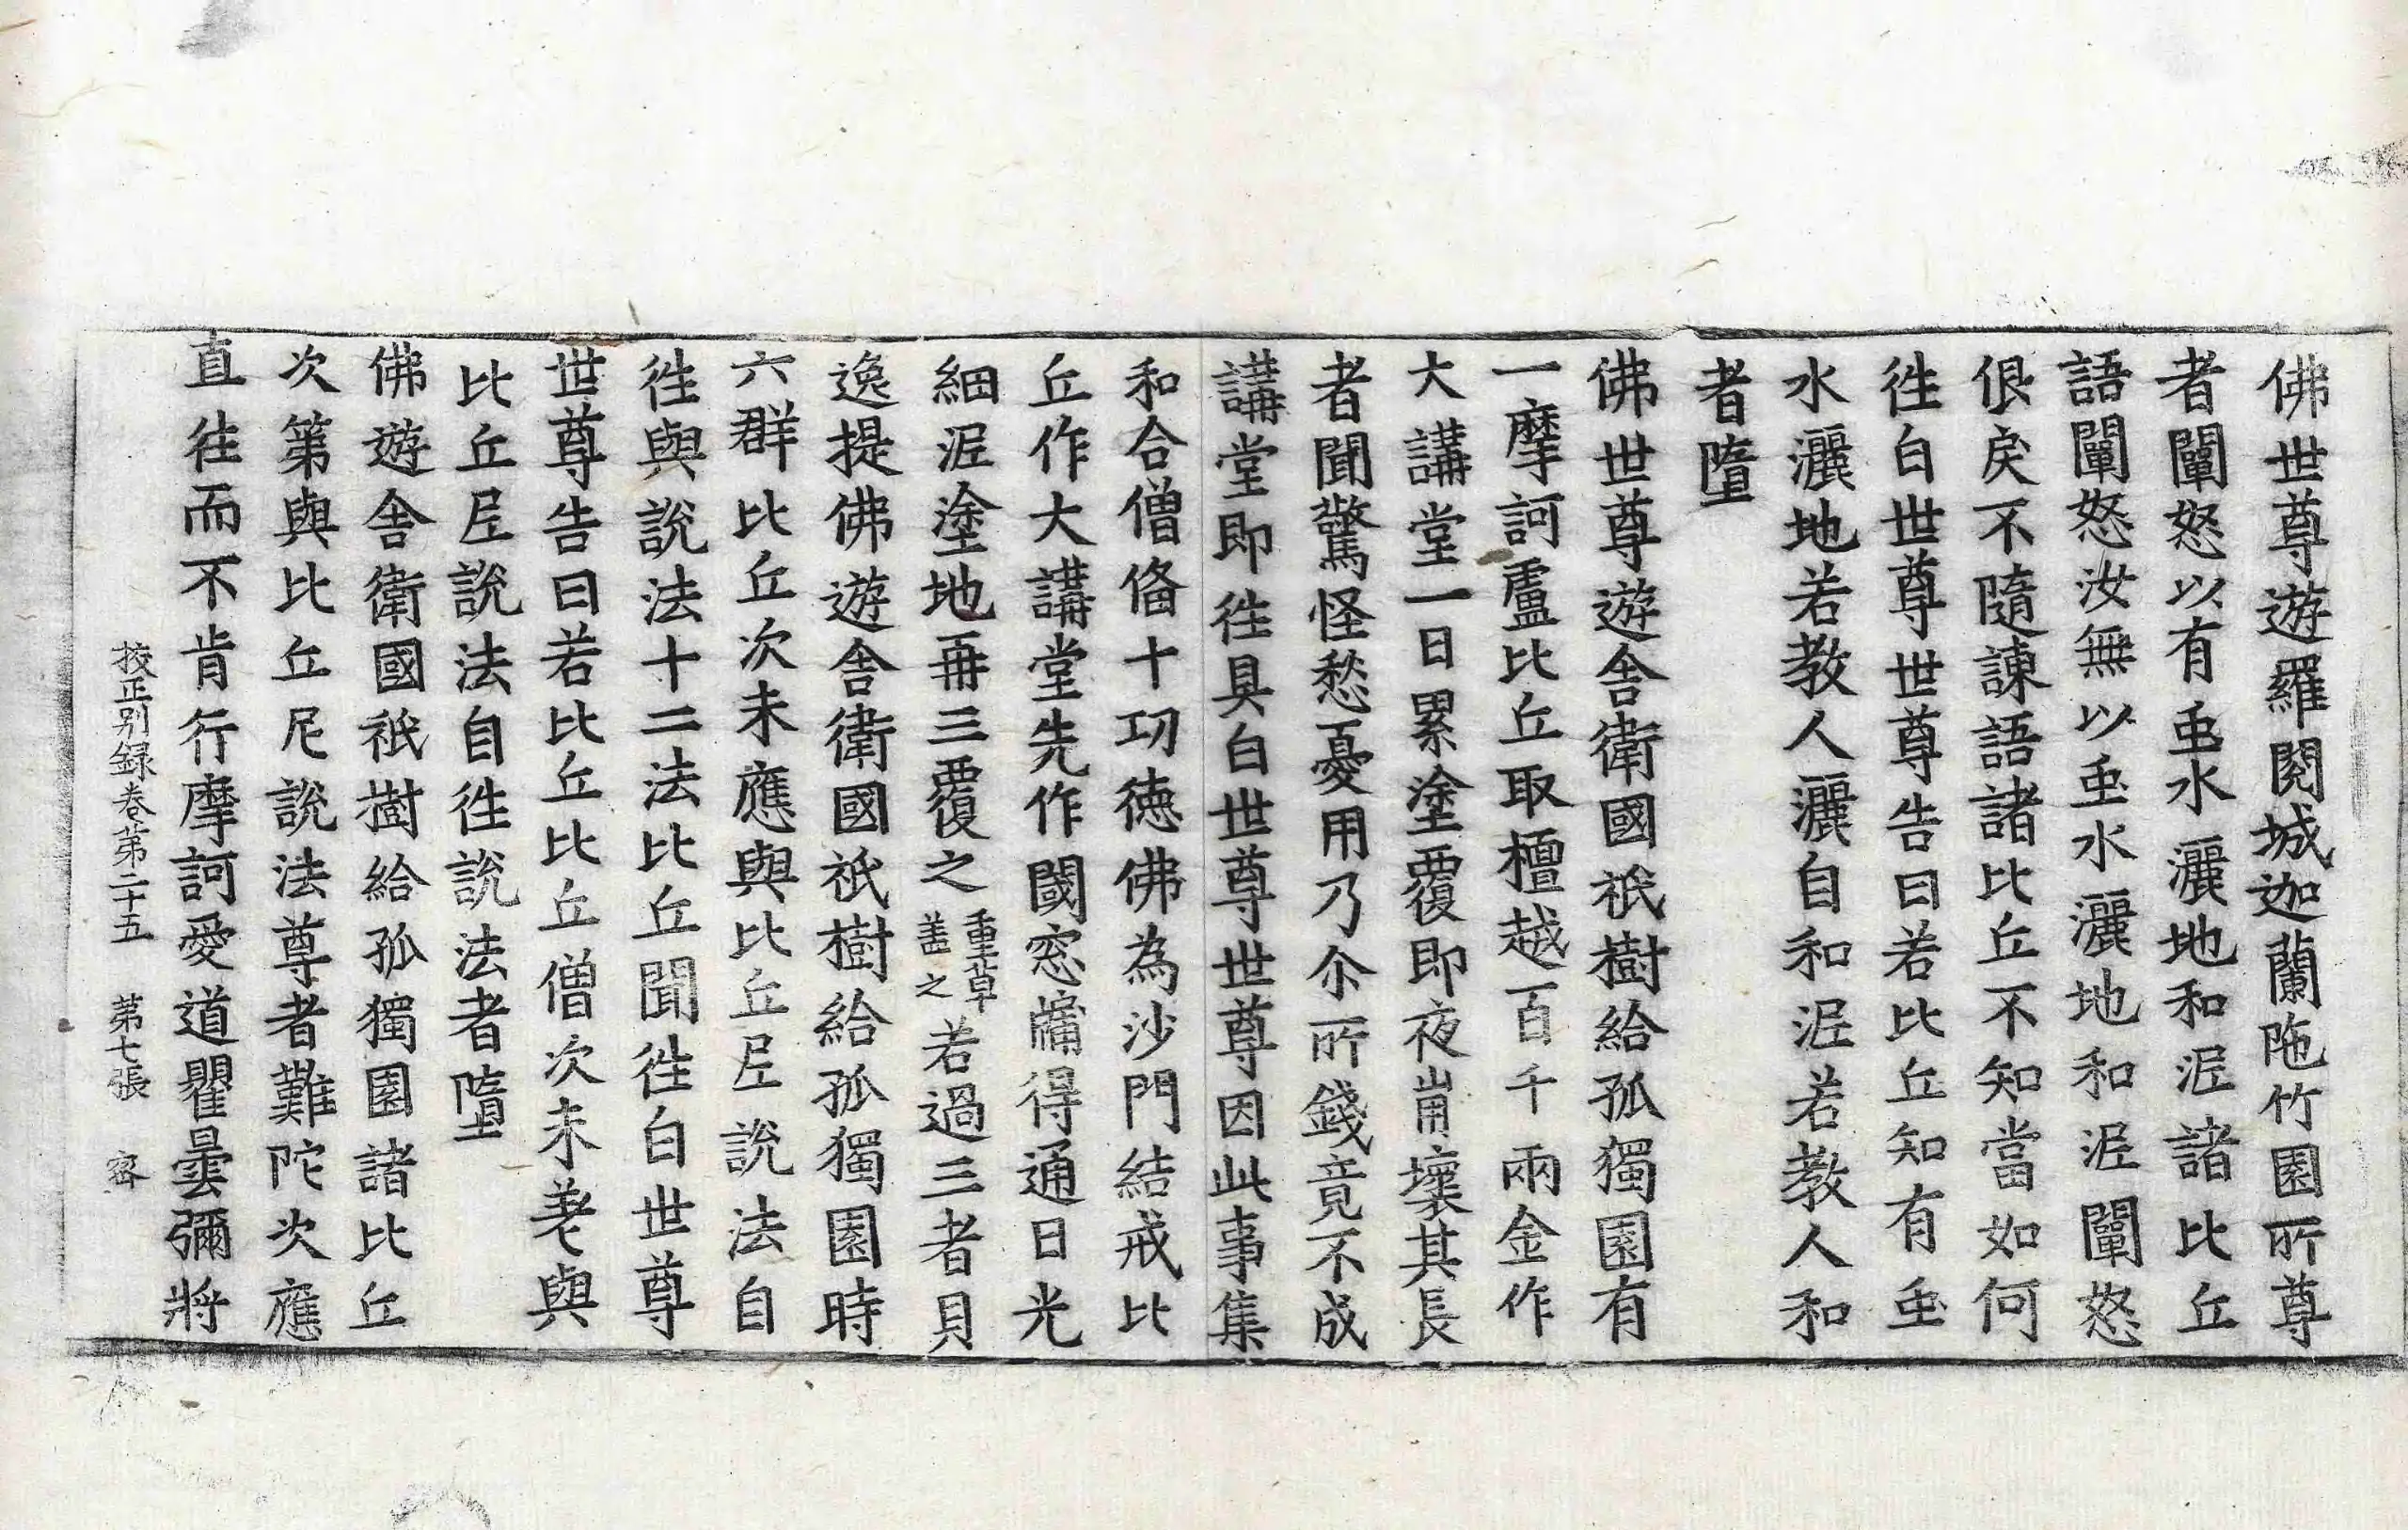 佛世尊遊羅閱城迦蘭陁竹園所尊
者闡怒以有虫水灑地和泥諸比丘
語闡怒汝無以虫水灑地和泥闡怒
佷戾不隨諫語諸比丘不知當如何
徃白世尊世尊告曰若比丘知有虫
水灑地若教人灑自和泥若教人和
者墮
佛世尊遊舍衛國祇樹給孤獨園有
一摩訶盧比丘取檀越百千兩金作
大講堂一日累塗覆即夜崩壞其長
者聞驚怪愁憂用乃尒所錢竟不成
講堂即徃具白世尊世尊因此事集
和合僧俻十㓛德佛為沙門結戒比
丘作大講堂先作閾窓牖得通日光
細泥塗地再三覆之重草盖之若過三者貝
逸提佛遊舍衛國祇樹給孤獨園時
六群比丘次未應與比丘尼說法自
徃與說法十二法比丘聞徃白世尊
世尊告曰若比丘比丘僧次未差與
比丘尼說法自徃說法者墮
佛遊舍衛國祇樹給孤獨園諸比丘
次第與比丘尼說法尊者難陀次應
直往而不肯行摩訶愛道瞿曇彌將
挍正别録卷第二十五 第七張 密